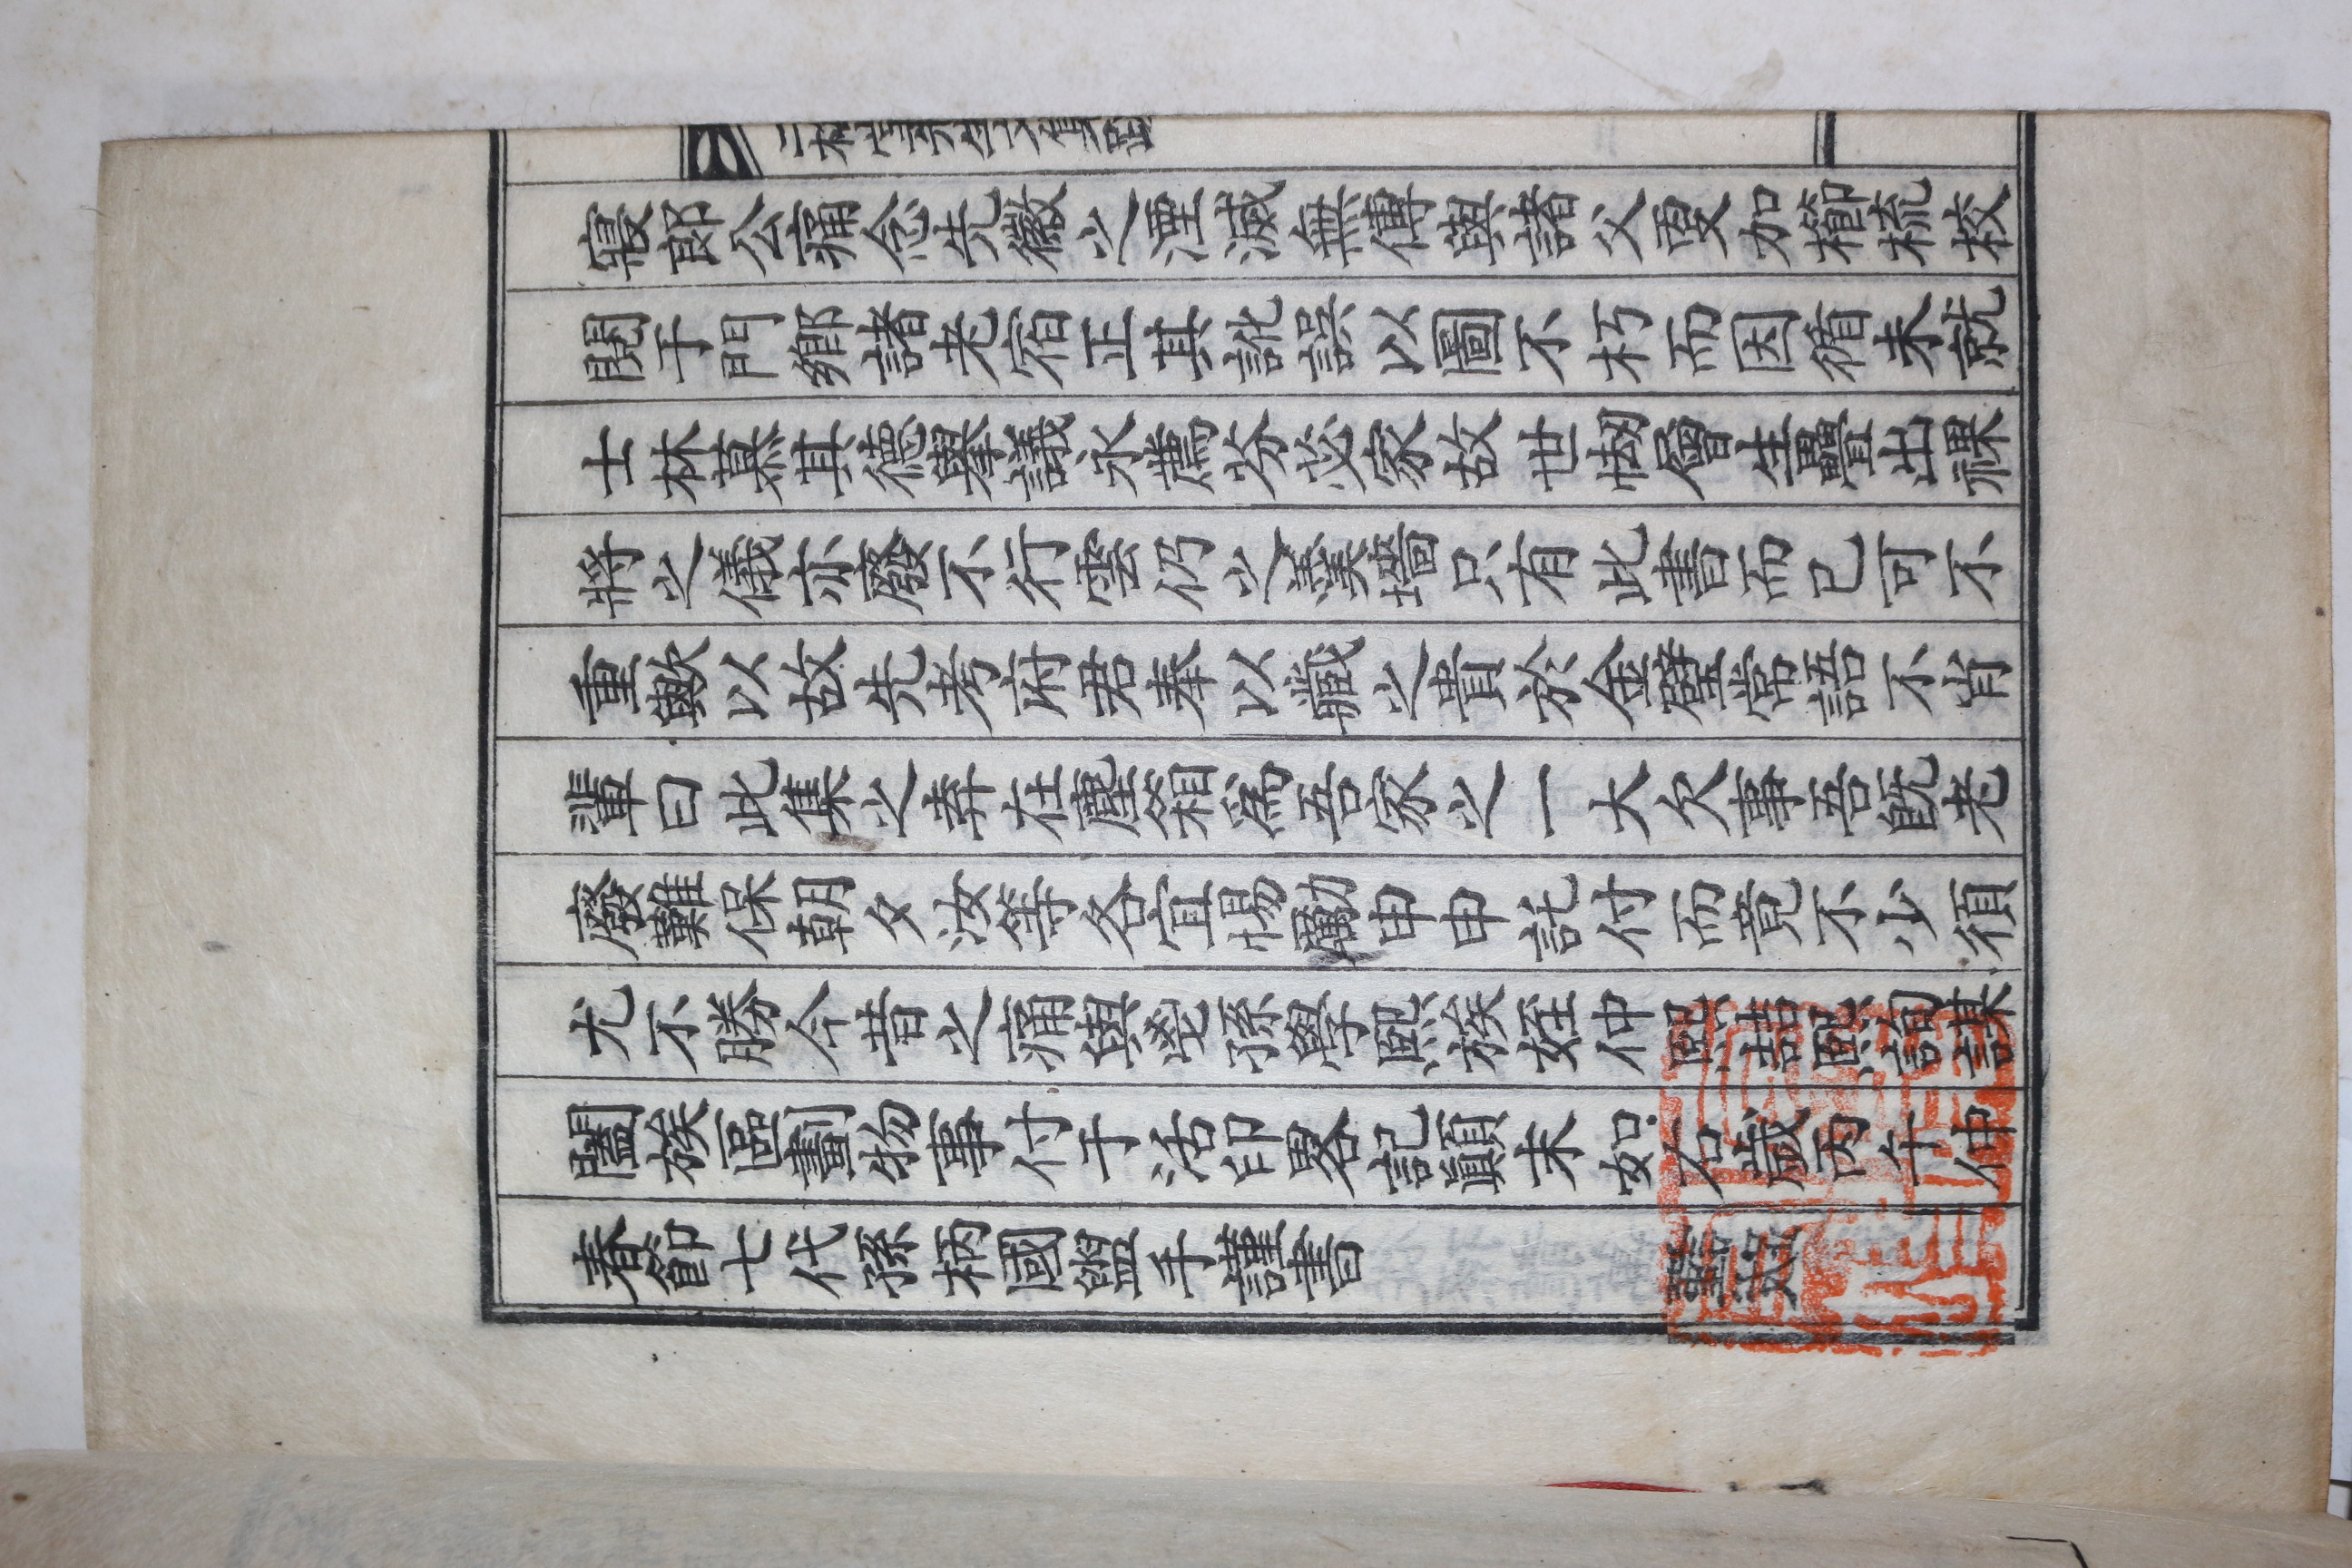 寢郎公痛念先徽之湮滅無傳與諸父更加櫛梳校
閱于門鄉諸老宿正其訛誤以圖不朽而因循未就
士林慕其德擧議永薦芬苾家故世刼層生疊出祼
將之儀亦廢不行雲仍之羹墻只有此書而已可不
重歟以故先考府君奉以藏之貴於金璧常語不肖
輩曰此集之弆在塵箱爲吾家之一大欠事吾旣老
廢難保朝夕汝等各宜惕勵申申託付而竟不少須
尤不勝今昔之痛與孫學熙族姪仲熙喆熙詢謀
闔族區劃物事付于活印畧記顚末如右歲丙午仲
春節七代孫柄國盥手謹書
先生文集跋